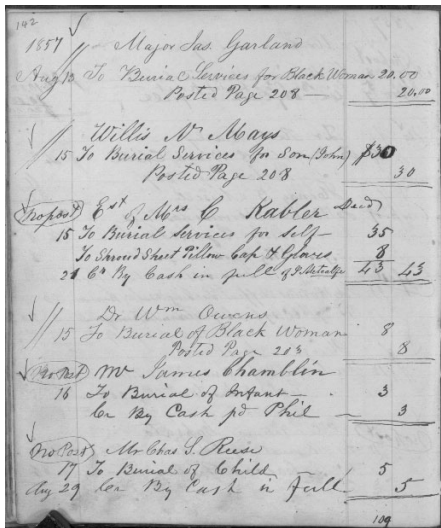 142
1857 // Major Jas. Garland
Aug 13 To Burial Services for Black Woman 20.00
Posted Page 208 — 20.00
// Willis N. Mays
15 To Burial Services for Son (John) $30
Posted Page 208 30
(No post) Est of Mrs C Kabler Decd
15 To Burial Services for Self — 35
To Shroud Sheet Pillow Cap & Gloves 8
21 Cr By Cash in full of 43 43
// Dr Wm Owens
15 To Burial of Black Woman 8
Posted Page 208 8
(No Post) Mr James Chamblin
16 To Burial of Infant — 3
Cr By Cash pd Phil — 3
(No Post) Mr Chas S. Reese
17 To Burial of Child 5
Aug 29 Cr By Cash in full 5
109